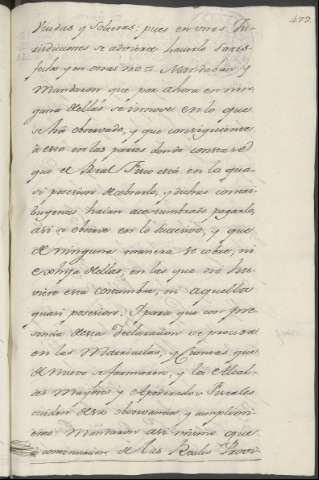 479.
Viudas y Solteras: pues en unas Ju-
risdicciones se advierte haverla satis-
fecho y en otras no = Mandaban y
Mandaron que por ahora en nin-
guna dellas se innove en lo que
se ha observado, y que consiguiente
à esto en las partes donde conste
que el Real Fisco está en la qua-
si posesion de cobrarlo, y dichas contri-
buyentes haian acostumbrado pagarlo,
assi se observe en lo sucesivo, y que
de ninguna manera se cobre, ni
exija dellas, en las que no hu-
viere esta costumbre, ni aquella
quasi posesion: Y para que con pre-
sencia desta Declaracion se proceda
en las Matriculas, y Cuentas que
de nuevo se formaren, y los Alcal-
des Mayores y Apoderados Fiscales
cuiden de su observancia y cumplimi-
ento Mandaron assi mismo que
à continuacion de las Reales Provi-